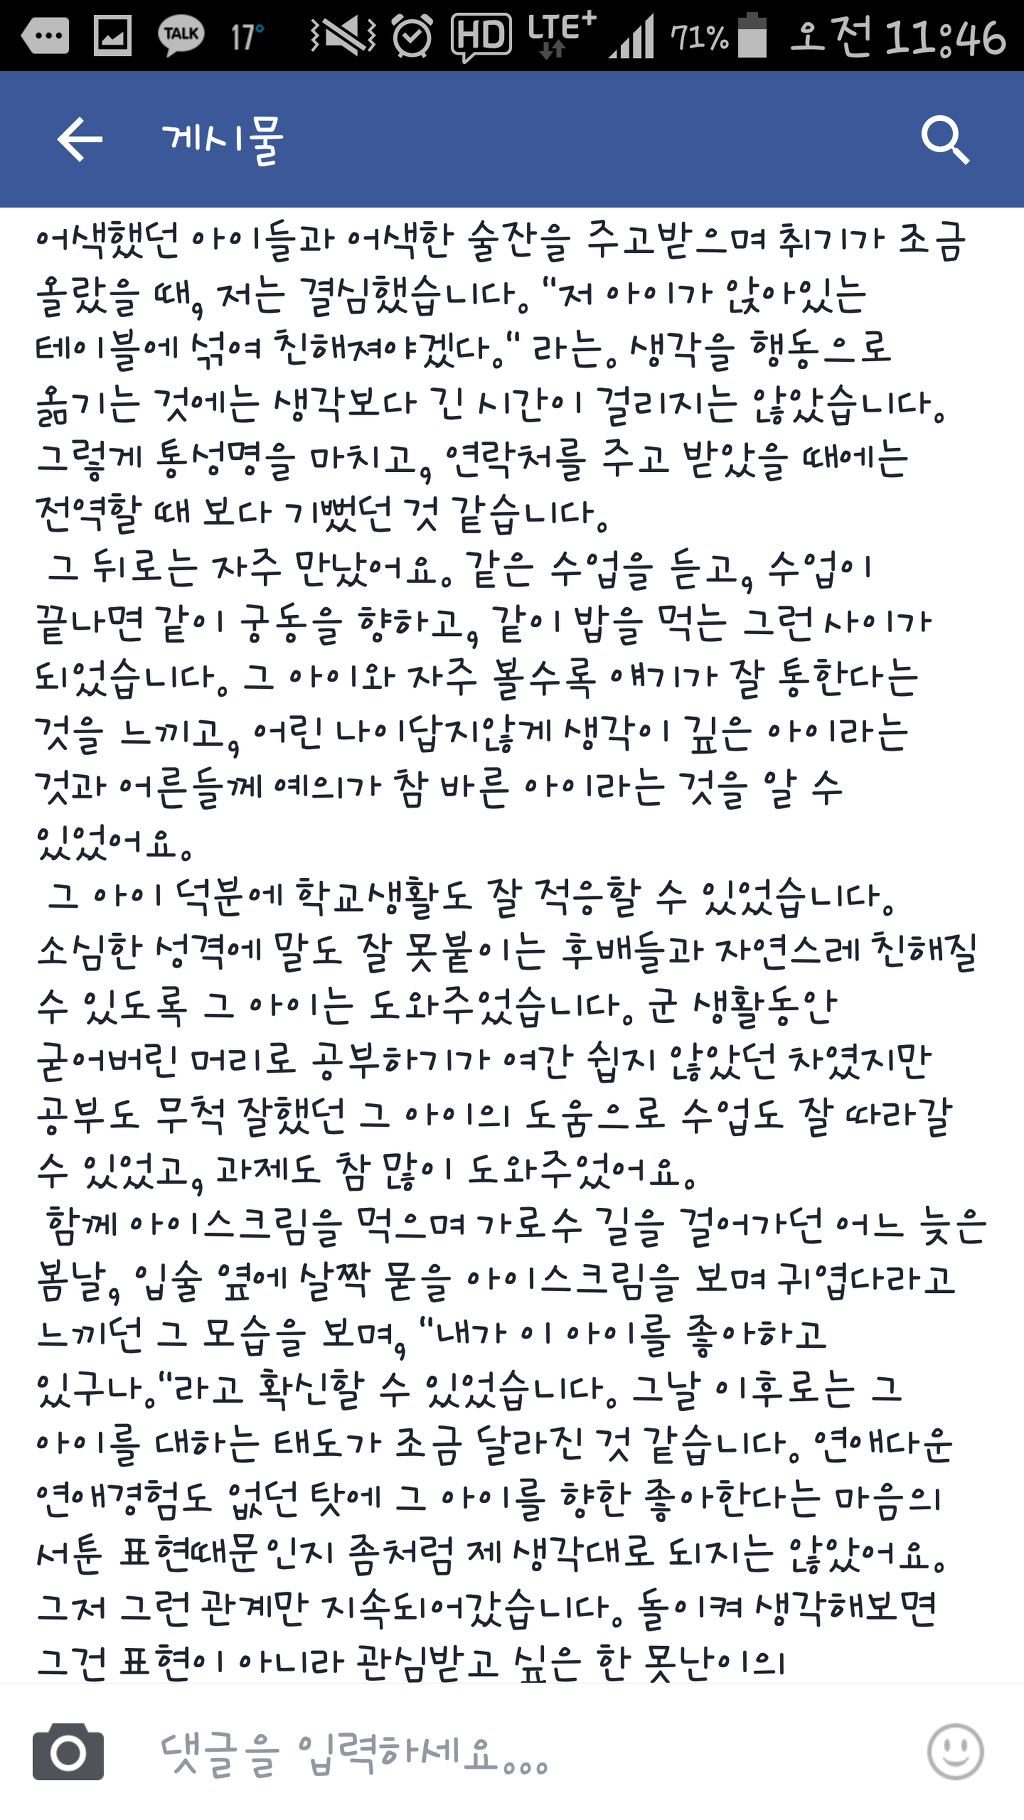 TALK 17° HD LTE+ 71% 오전 11:46
게시물
어색했던 아이들과 어색한 술잔을 주고받으며 취기가 조금
올랐을 때, 저는 결심했습니다. "저 아이가 앉아있는
테이블에 섞여 친해져야겠다." 라는. 생각을 행동으로
옮기는 것에는 생각보다 긴 시간이 걸리지는 않았습니다.
그렇게 통성명을 마치고, 연락처를 주고 받았을 때에는
전역할 때 보다 기뻤던 것 같습니다.
그 뒤로는 자주 만났어요. 같은 수업을 듣고, 수업이
끝나면 같이 궁동을 향하고, 같이 밥을 먹는 그런 사이가
되었습니다. 그 아이와 자주 볼수록 얘기가 잘 통한다는
것을 느끼고, 어린 나이답지않게 생각이 깊은 아이라는
것과 어른들께 예의가 참 바른 아이라는 것을 알 수
있었어요.
그 아이 덕분에 학교생활도 잘 적응할 수 있었습니다.
소심한 성격에 말도 잘 못붙이는 후배들과 자연스레 친해질
수 있도록 그 아이는 도와주었습니다. 군 생활동안
굳어버린 머리로 공부하기가 여간 쉽지 않았던 차였지만
공부도 무척 잘했던 그 아이의 도움으로 수업도 잘 따라갈
수 있었고, 과제도 참 많이 도와주었어요.
함께 아이스크림을 먹으며 가로수 길을 걸어가던 어느 늦은
봄날, 입술 옆에 살짝 묻을 아이스크림을 보며 귀엽다라고
느끼던 그 모습을 보며, "내가 이 아이를 좋아하고
있구나."라고 확신할 수 있었습니다. 그날 이후로는 그
아이를 대하는 태도가 조금 달라진 것 같습니다. 연애다운
연애경험도 없던 탓에 그 아이를 향한 좋아한다는 마음의
서툰 표현때문인지 좀처럼 제 생각대로 되지는 않았어요.
그저 그런 관계만 지속되어갔습니다. 돌이켜 생각해보면
그건 표현이 아니라 관심받고 싶은 한 못난이의
댓글을 입력하세요...